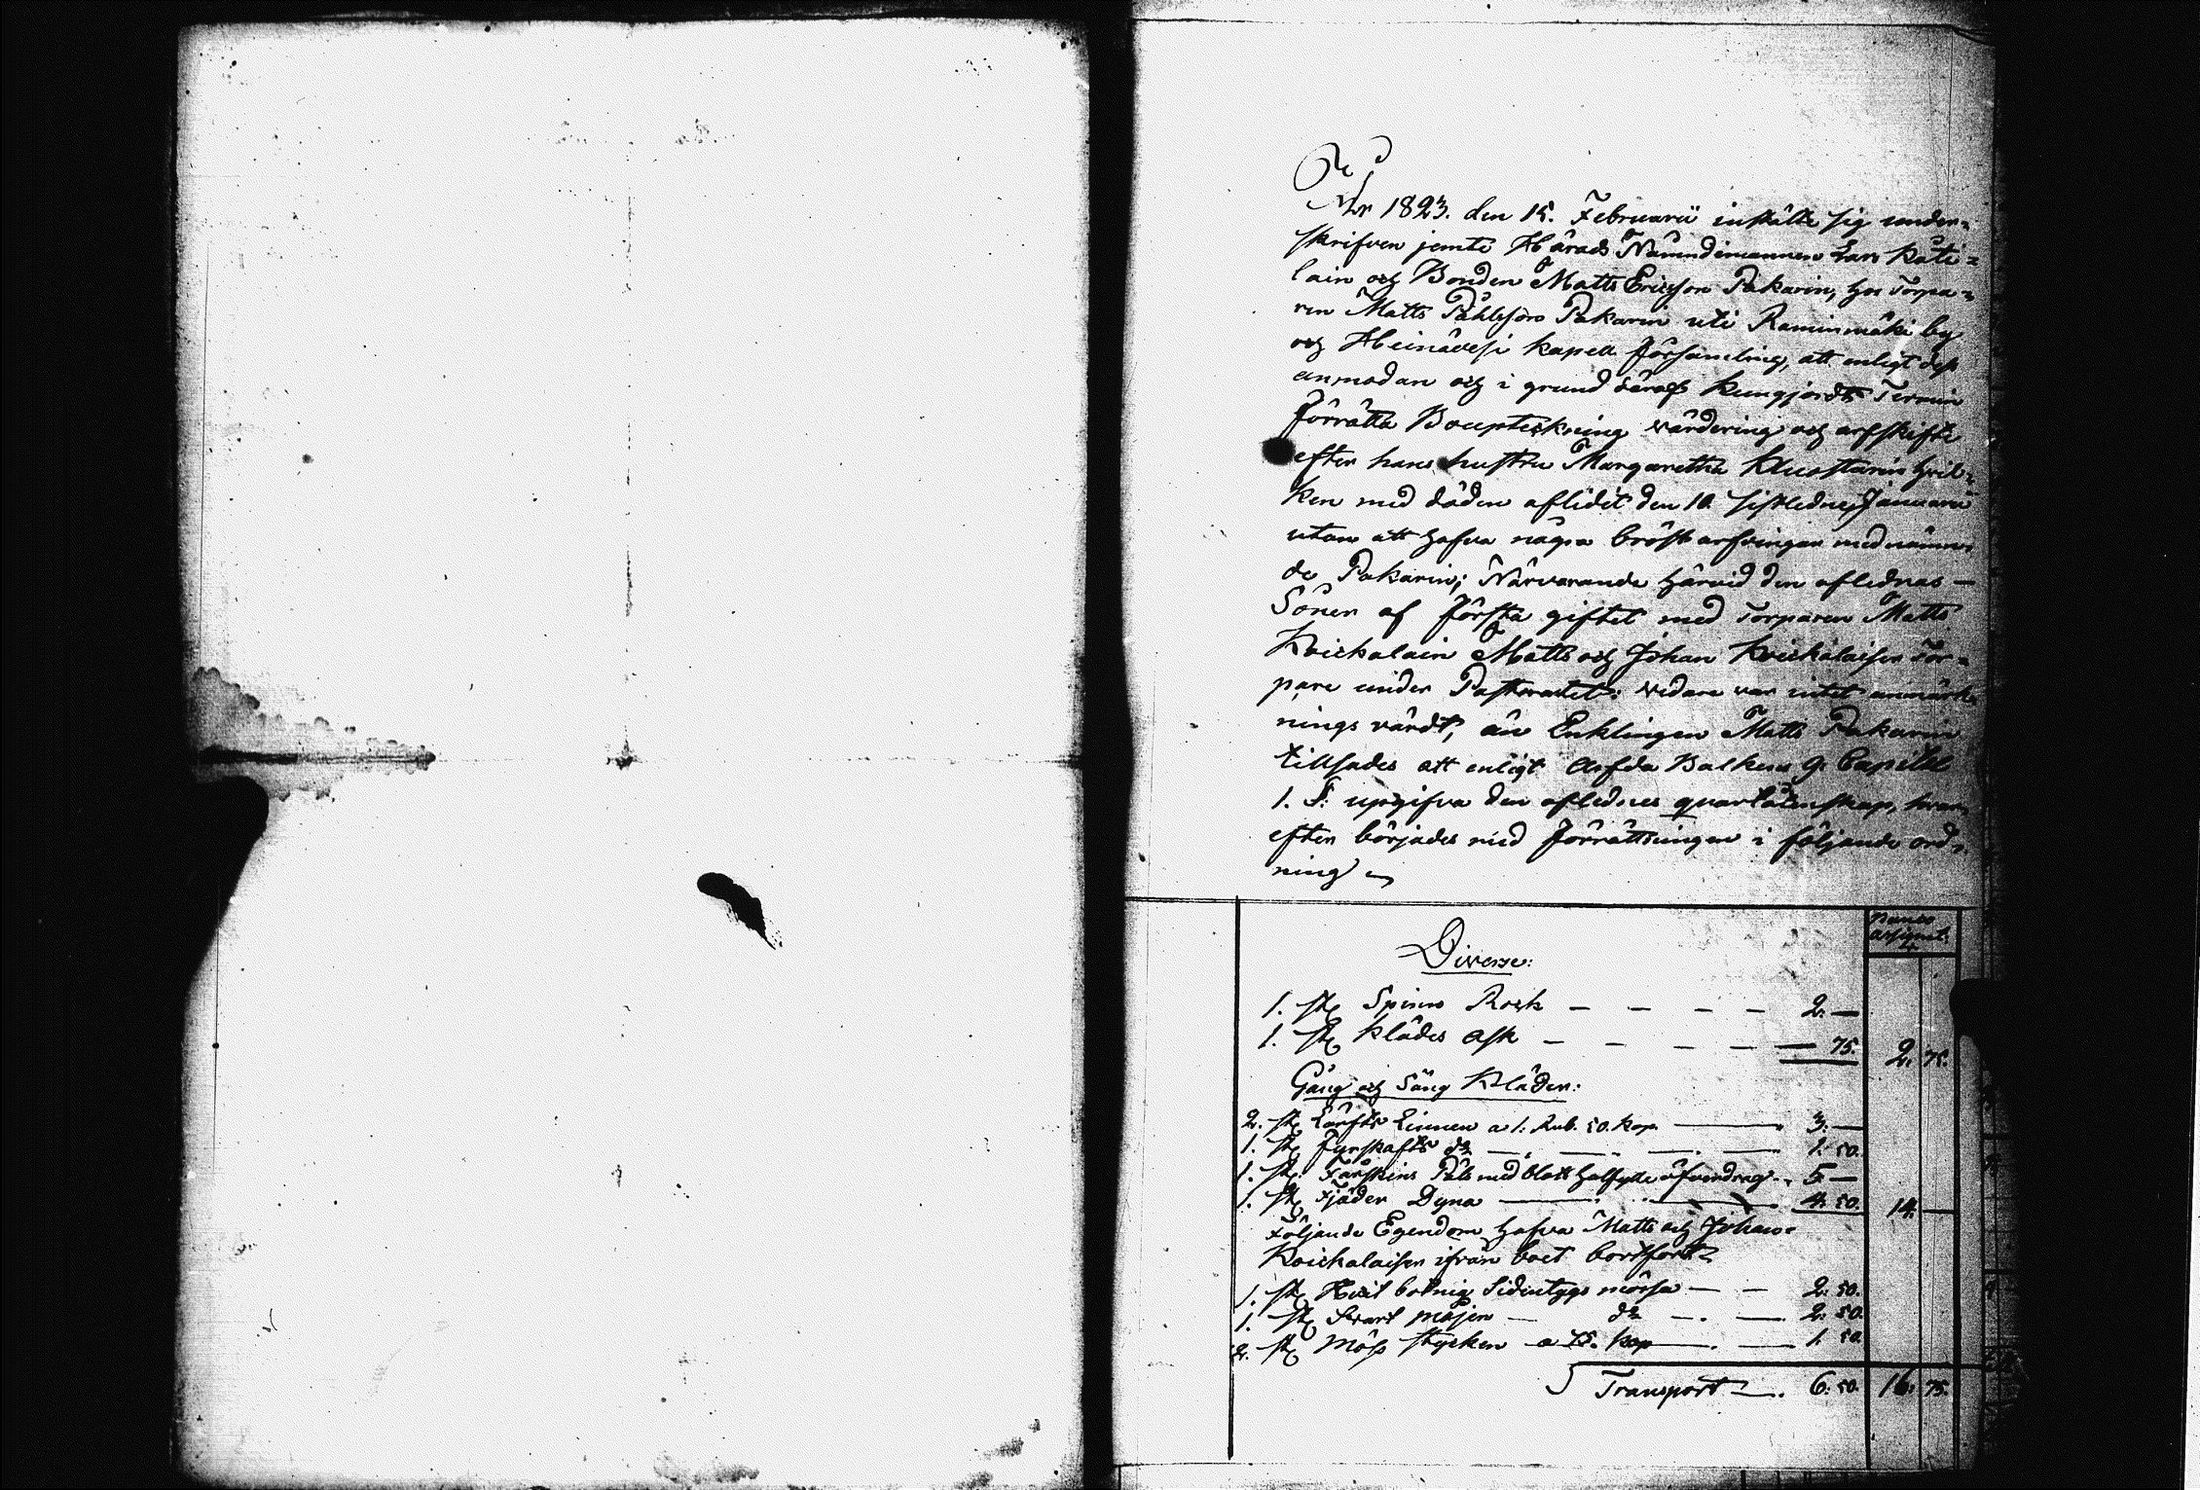 År 1823. den 15. Februarii instälte sig under-
skrifven jemte Härads Nämndemannen Lars Kati-
lain och Bonden Matts Ericsson Pakarin, hos Torpa-
ren Matts Påhlsson Pakarin uti Raminmäki by
och Heinävesi Kapell församling, att enligt dess
anmodan och i grund häraf kungjordt Termin
förrätta Bouptekning värdering och arfskifte
efter hans hustru Margaretha Kluustarin hvil-
ken med döden aflidit den 10 sistledne Januarii
utan att hafva några bröstarfvingar med nämn-
de Pakarin; Närvarande härvid den aflednas
Söner af första giftet med Torparen Matts
Koickalain Matts och Johan Koickalaisen Tor-
pare under Pastoratet: vidare var intet anmärk-
nings värdt, än Enklingen Matts Pakarin
tillsades att enligt Ärfda Balkens 9. Capitel
1. §: upgifva den aflednes qvarlåtenskap, hvar-
efter börjades med förrättningen i följande ord-
ning
Banco
assignat.
Diverse:
1. st Spinn Rock — — — — 2. —
1. st Klädes Ask — — — — 75. 2. 75.
Gång och Säng Kläder:
2. st Lärfts Linnen a 1. Rub. 50. kop. — 3. —
1. st Fyrskafts do — 1. 50.
1. st Fårskins Päls med blått halfylle öfverdrag 5 —
1. st Fjäder Dyna — 4. 50. 14. —
Följande Egendom hafva Matts och Johan
Koickalaisen ifrån boet bortfört
1. st Hvit botnig Sidentygs mössa — — 2. 50.
1. st Svart do — 2. 50.
2. st Möss stycken a 75. kop — 1. 50.
Transport — 6. 50. 16. 75.